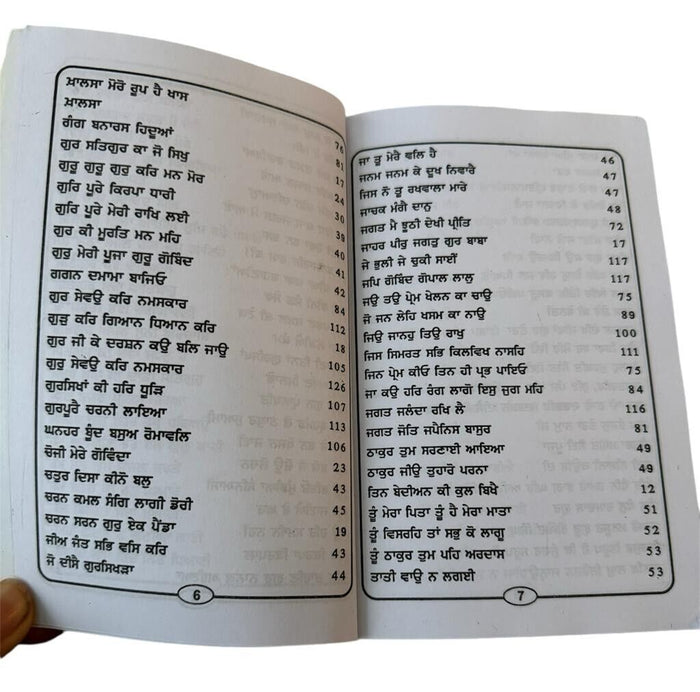 ਖ਼ਾਲਸਾ ਮੇਰੋ ਰੂਪ ਹੈ ਖਾਸ
ਖ਼ਾਲਸਾ
ਗੰਗ ਬਨਾਰਸ ਹਿਦੂਆਂ 76
ਗੁਰ ਸਤਿਗੁਰ ਕਾ ਜੋ ਸਿਖੁ 81
ਗੁਰੂ ਗੁਰੂ ਗੁਰੁ ਕਰਿ ਮਨ ਮੋਰ 17
ਗੁਰਿ ਪੂਰੇ ਕਿਰਪਾ ਧਾਰੀ 24
ਗੁਰਿ ਪੂਰੇ ਮੇਰੀ ਰਾਖਿ ਲਈ 30
ਗੁਰ ਕੀ ਮੂਰਤਿ ਮਨ ਮਹਿ 39
ਗੁਰੁ ਮੇਰੀ ਪੂਜਾ ਗੁਰੂ ਗੋਬਿੰਦ 40
ਗਗਨ ਦਮਾਮਾ ਬਾਜਿਓ 41
ਗੁਰ ਸੇਵਉ ਕਰਿ ਨਮਸਕਾਰ 42
ਗੁਝੁ ਕਰਿ ਗਿਆਨ ਧਿਆਨ ਕਰਿ 84
ਗੁਰ ਜੀ ਕੇ ਦਰਸ਼ਨ ਕਉ ਬਲਿ ਜਾਉ 112
ਗੁਰੁ ਸੇਵਉ ਕਰਿ ਨਮਸਕਾਰ 18
ਗੁਰਸਿਖਾਂ ਕੀ ਹਰਿ ਧੂੜਿ 105
ਗੁਰਪੂਰੈ ਚਰਨੀ ਲਾਇਆ 126
ਘਨਹਰ ਬੂੰਦ ਬਸੁਅ ਰੋਮਾਵਲਿ 107
ਚੋਜੀ ਮੇਰੇ ਗੋਵਿੰਦਾ 113
ਚਤੁਰ ਦਿਸਾ ਕੀਨੋ ਬਲੁ 106
ਚਰਨ ਕਮਲ ਸੰਗਿ ਲਾਗੀ ਡੋਰੀ 23
ਚਰਨ ਸਰਨ ਗੁਰੁ ਏਕ ਪੈਂਡਾ 43
ਜੀਅ ਜੰਤ ਸਭਿ ਵਸਿ ਕਰਿ 45
ਜੋ ਦੀਸੈ ਗੁਰਸਿਖੜਾ 19
43
44
6
ਜਾ ਤੂ ਮੇਰੈ ਵਲਿ ਹੈ 46
ਜਨਮ ਜਨਮ ਕੇ ਦੂਖ ਨਿਵਾਰੈ 47
ਜਿਸ ਨੋ ਤੂ ਰਖਵਾਲਾ ਮਾਰੇ 47
ਜਾਚਕ ਮੰਗੈ ਦਾਨੁ 48
ਜਗਤ ਮੈ ਝੂਠੀ ਦੇਖੀ ਪ੍ਰੀਤਿ 72
ਜਾਹਰ ਪੀਰੁ ਜਗਤੁ ਗੁਰ ਬਾਬਾ 17
ਜੇ ਭੁਲੀ ਜੇ ਚੁਕੀ ਸਾਈਂ 117
ਜਪਿ ਗੋਬਿੰਦ ਗੋਪਾਲ ਲਾਲੁ 117
ਜਉ ਤਉ ਪ੍ਰੇਮ ਖੇਲਨ ਕਾ ਚਾਉ 75
ਜੋ ਜਨ ਲੇਹਿ ਖਸਮ ਕਾ ਨਾਉ 89
ਜਿਉ ਜਾਨਹੁ ਤਿਉ ਰਾਖੁ 100
ਜਿਸ ਸਿਮਰਤ ਸਭਿ ਕਿਲਵਿਖ ਨਾਸਹਿ 111
ਜਿਨ ਪ੍ਰੇਮ ਕੀਓ ਤਿਨ ਹੀ ਪ੍ਰਭ ਪਾਇਓ 75
ਜਾ ਕਉ ਹਰਿ ਰੰਗ ਲਾਗੋ ਇਸੁ ਜੁਗ ਮਹਿ 84
ਜਗਤ ਜਲੰਦਾ ਰਖਿ ਲੈ 116
ਜਗਤ ਜੋਤਿ ਜਪੈਨਿਸ ਬਾਸੁਰ 81
ਠਾਕੁਰ ਤੁਮ ਸਰਣਾਈ ਆਇਆ 49
ਠਾਕੁਰ ਜੀਉ ਤੁਹਾਰੋ ਪਰਨਾ 49
ਤਿਨ ਬੇਦੀਅਨ ਕੀ ਕੁਲ ਬਿਖੈ 12
ਤੂੰ ਮੇਰਾ ਪਿਤਾ ਤੂੰ ਹੈ ਮੇਰਾ ਮਾਤਾ 51
ਤੂੰ ਵਿਸਰਹਿ ਤਾਂ ਸਭੁ ਕੋ ਲਾਗੂ 52
ਤੂੰ ਠਾਕੁਰ ਤੁਮ ਪਹਿ ਅਰਦਾਸ 53
ਤਾਤੀ ਵਾਉ ਨ ਲਗਈ 53
7